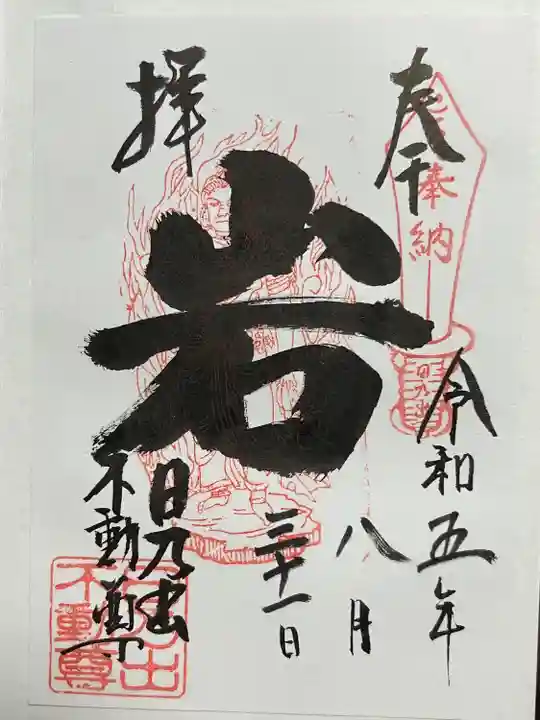 奉
拝
奉納
日乃出
岩
令和五年
八月
三十一日
日乃出
不動尊
日乃出
不動尊